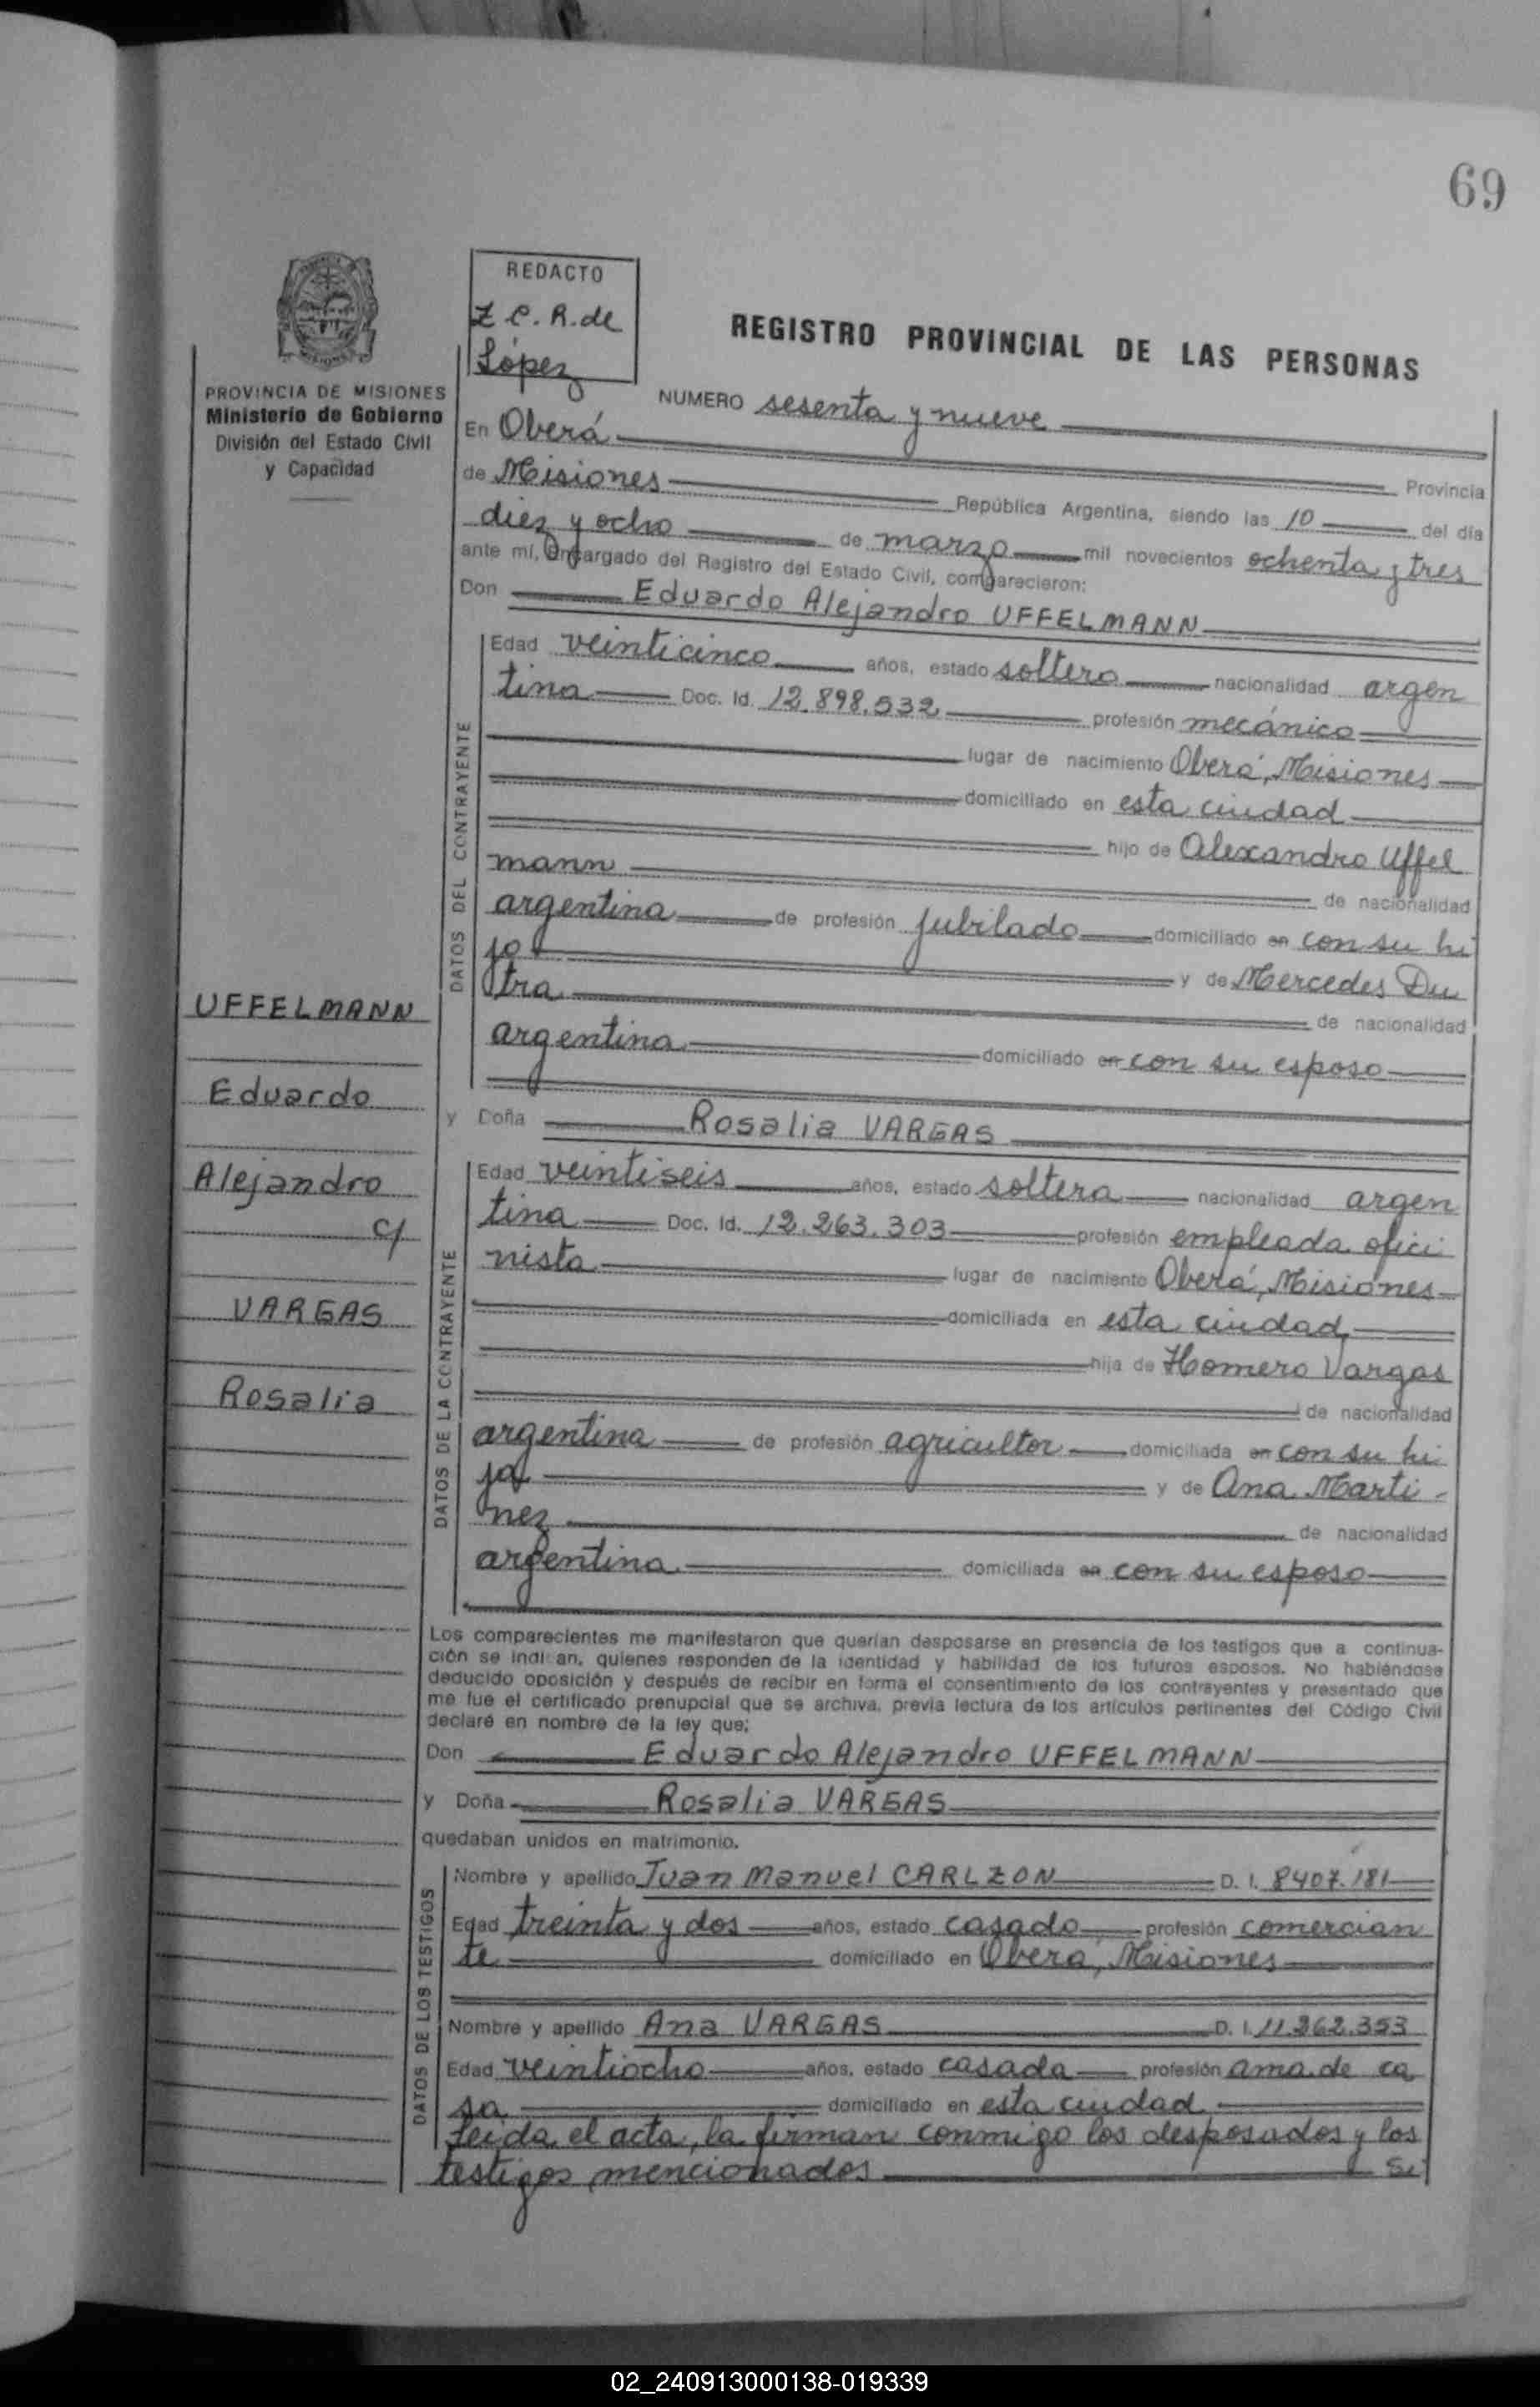 69
REDACTO
Z C. R. de
López
REGISTRO PROVINCIAL DE LAS PERSONAS
PROVINCIA DE MISIONES
Ministerio de Gobierno
División del Estado Civil
y Capacidad
NUMERO sesenta y nueve
En Oberá Provincia
de Misiones República Argentina, siendo las 10 del día
diez y ocho de marzo mil novecientos ochenta y tres
ante mí, Encargado del Registro del Estado Civil, comparecieron:
Don Eduardo Alejandro UFFELMANN
DATOS DEL CONTRAYENTE
Edad veinticinco años, estado soltero nacionalidad argen
tina Doc. Id. 12.898.532 profesión mecánico
lugar de nacimiento Oberá, Misiones
domiciliado en esta ciudad
hijo de Alexandro Uffel
mann de nacionalidad
argentina de profesión jubilado domiciliado en con su hi
jo y de Mercedes Du
tra de nacionalidad
argentina domiciliado en con su esposo
y Doña Rosalia VARGAS
UFFELMANN
Eduardo
Alejandro
c/
VARGAS
Rosalia
DATOS DE LA CONTRAYENTE
Edad veintiseis años, estado soltera nacionalidad argen
tina Doc. Id. 12.263.303 profesión empleada ofici
nista lugar de nacimiento Oberá, Misiones
domiciliada en esta ciudad
hija de Homero Vargas
de nacionalidad
argentina de profesión agricultor domiciliada en con su hi
ja y de Ana Marti-
nez de nacionalidad
argentina domiciliada en con su esposo
Los comparecientes me manifestaron que querían desposarse en presencia de los testigos que a continua-
ción se indi an, quienes responden de la identidad y habilidad de los futuros esposos. No habiéndose
deducido oposición y después de recibir en forma el consentimiento de los contrayentes y presentado que
me fue el certificado prenupcial que se archiva, previa lectura de los artículos pertinentes del Código Civil
declaré en nombre de la ley que;
Don Eduardo Alejandro UFFELMANN
y Doña Rosalia VARGAS
quedaban unidos en matrimonio.
DATOS DE LOS TESTIGOS
Nombre y apellido Juan Manuel CARLZON D. I. 8407.181
Edad treinta y dos años, estado casado profesión comercian
te domiciliado en Oberá, Misiones
Nombre y apellido Ana VARGAS D. I. 11.262.353
Edad veintiocho años, estado casada profesión ama de ca
sa domiciliado en esta ciudad
Leida el acta, la firman conmigo los desposados y los
testigos mencionados
02_240913000138-019339